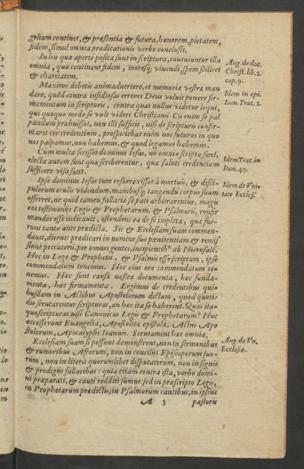 gelium continet, & præsentia & futura, honorem, pietatem,
fidem, simul omnia prædicationis verbo conclusit.
In his quæ apertè posita sunt in scriptura, inueniuntur illa
omnia, quæ continent fidem, moresq́; viuendi, spem scilicet
& charitatem.
Aug. de doc.
Christ. lib. 2.
cap. 9.
Maximè debetis animaduertere, et memoriæ vestræ man
dare, quòd contra insidiosos errores Deus voluit ponere fir-
mamentum in scripturis, contra quas nullus videtur loqui,
qui quoquo modo se vult videri Christianū. Cū enim se pal
pandum præbuisset, non illi sufficit, nisi de scripturis confir-
maret cor credentium, prospiciebat enim nos futuros in quo
nos palpamus, non habemus, & quod legamus habemus.
Idem in epi.
Ioan. Trac. 2.
Cum multa fecisset dominus Iesus, non omnia scripta sunt,
electa autem sunt quæ scriberentur, quæ saluti credentium
sufficere visa sunt.
Idem Trac. in
Ioan. 49.
Ipse dominus Iesus cum resurrexisset à mortuis, & disci-
pulorum oculis videndum, manibusq́; tangendū corpus suum
offerret, ne quid tamen fallaciæ se pati arbitrarentur, magis
eos testimonijs Legis & Prophetarum, & Psalmorū, confir
mandos esse iudicauit, ostendens ea de se impleta, quæ fue-
runt tanto antè prædicta. Sic & Ecclesiam suam commen-
dauit, dicens: prædicari in nomine suo pœnitentiam & remiss
sionē peccatorū, per omnes gentes, incipientib⁹ ab Hierusalē.
Hoc in Lege & Prophetis, & Psalmis esse scriptum, ipse
commendatum tenemus. Hoc eius ore commendatum te-
nemus. Hæc sunt causæ nostræ documenta, hæc funda-
menta, hæc firmamenta. Legimus de credentibus qui-
busdam in Actibus Apostolorum dictum, quòd quoti-
die scrutarentur scripturas, an hæc ita se haberent. Quas ita-
que scripturas nisi Canonicas Legis & Prophetarum? Huc
accesserunt Euangelia, Apostolicæ epistolæ, Actus Apo
stolorum, Apocalypsis Ioannis. Scrutamini hæc omnia.
Idem de Vni-
tate Ecclesiæ.
Ecclesiam suam si possunt demonstrent, non in sermonibus
& rumoribus Afrorum, non in concilijs Episcoporum suo-
rum, non in literis quorumlibet disputatorum, non in signis
& prodigijs fallacibus: quia etiam contra ista, verbo domi-
ni præparati, & cauti redditi sumus: sed in præscripto Legis,
in Prophetarum prædictis, in Psalmorum cantibus, in ipsius
Aug. de Vn.
Ecclesiæ.
A 3 pastoris